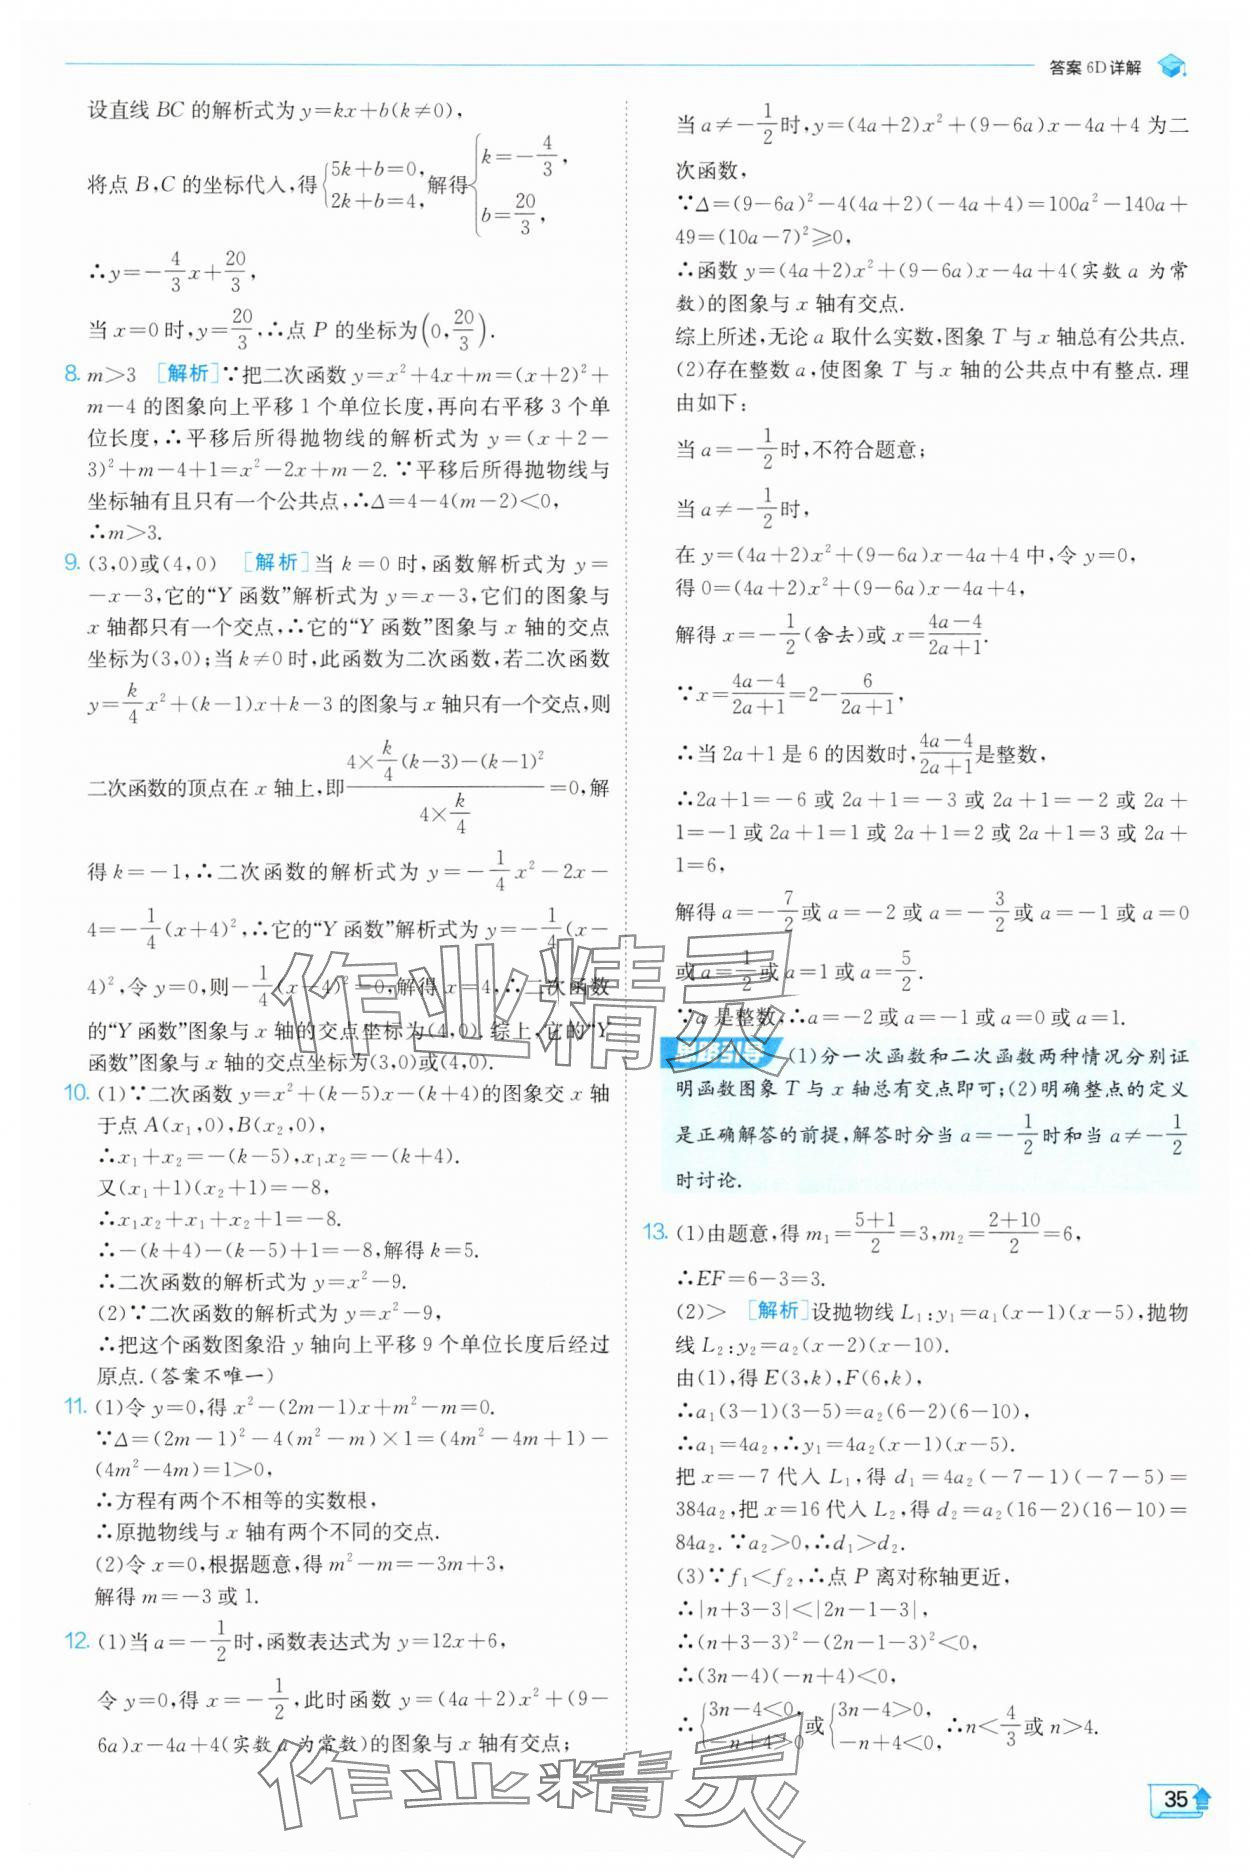 答案 6D详解
设直线 BC 的解析式为 y=kx+b(k≠0),
将点 B,C 的坐标代入,得{5k+b=0, 2k+b=4, 解得{k=-4/3, b=20/3,
∴y=-4/3x+20/3,
当 x=0 时,y=20/3,∴点 P 的坐标为(0,20/3).
8. m>3 [解析]∵把二次函数 y=x²+4x+m=(x+2)²+
m-4 的图象向上平移 1 个单位长度,再向右平移 3 个单
位长度,∴平移后所得抛物线的解析式为 y=(x+2-
3)²+m-4+1=x²-2x+m-2.∵平移后所得抛物线与
坐标轴有且只有一个公共点,∴Δ=4-4(m-2)<0,
∴m>3.
9. (3,0)或(4,0) [解析]当 k=0 时,函数解析式为 y=
-x-3,它的“Y 函数”解析式为 y=x-3,它们的图象与
x 轴都只有一个交点,∴它的“Y 函数”图象与 x 轴的交点
坐标为(3,0);当 k≠0 时,此函数为二次函数,若二次函数
y=k/4x²+(k-1)x+k-3 的图象与 x 轴只有一个交点,则
二次函数的顶点在 x 轴上,即(4×k/4(k-3)-(k-1)²)/(4×k/4)=0,解
得 k=-1,∴二次函数的解析式为 y=-1/4x²-2x-
4=-1/4(x+4)²,∴它的“Y 函数”解析式为 y=-1/4(x-
4)²,令 y=0,则-1/4(x-4)²=0,解得 x=4,∴二次函数
的“Y 函数”图象与 x 轴的交点坐标为(4,0).综上,它的“Y
函数”图象与 x 轴的交点坐标为(3,0)或(4,0).
10. (1)∵二次函数 y=x²+(k-5)x-(k+4)的图象交 x 轴
于点 A(x₁,0),B(x₂,0),
∴x₁+x₂=-(k-5),x₁x₂=-(k+4).
又(x₁+1)(x₂+1)=-8,
∴x₁x₂+x₁+x₂+1=-8.
∴-(k+4)-(k-5)+1=-8,解得 k=5.
∴二次函数的解析式为 y=x²-9.
(2)∵二次函数的解析式为 y=x²-9,
∴把这个函数图象沿 y 轴向上平移 9 个单位长度后经过
原点.(答案不唯一)
11. (1)令 y=0,得 x²-(2m-1)x+m²-m=0.
∵Δ=(2m-1)²-4(m²-m)×1=(4m²-4m+1)-
(4m²-4m)=1>0,
∴方程有两个不相等的实数根,
∴原抛物线与 x 轴有两个不同的交点.
(2)令 x=0,根据题意,得 m²-m=-3m+3,
解得 m=-3 或 1.
12. (1)当 a=-1/2时,函数表达式为 y=12x+6,
令 y=0,得 x=-1/2,此时函数 y=(4a+2)x²+(9-
6a)x-4a+4(实数 a 为常数)的图象与 x 轴有交点;
当 a≠-1/2时,y=(4a+2)x²+(9-6a)x-4a+4 为二
次函数,
∵Δ=(9-6a)²-4(4a+2)(-4a+4)=100a²-140a+
49=(10a-7)²≥0,
∴函数 y=(4a+2)x²+(9-6a)x-4a+4(实数 a 为常
数)的图象与 x 轴有交点.
综上所述,无论 a 取什么实数,图象 T 与 x 轴总有公共点.
(2)存在整数 a,使图象 T 与 x 轴的公共点中有整点.理
由如下:
当 a=-1/2时,不符合题意;
当 a≠-1/2时,
在 y=(4a+2)x²+(9-6a)x-4a+4 中,令 y=0,
得 0=(4a+2)x²+(9-6a)x-4a+4,
解得 x=-1/2(舍去)或 x=(4a-4)/(2a+1).
∵x=(4a-4)/(2a+1)=2-6/(2a+1),
∴当 2a+1 是 6 的因数时,(4a-4)/(2a+1)是整数,
∴2a+1=-6 或 2a+1=-3 或 2a+1=-2 或 2a+
1=-1 或 2a+1=1 或 2a+1=2 或 2a+1=3 或 2a+
1=6,
解得 a=-7/2或 a=-2 或 a=-3/2或 a=-1 或 a=0
或 a=1/2或 a=1 或 a=5/2.
∵a 是整数,∴a=-2 或 a=-1 或 a=0 或 a=1.
思路引导 (1)分一次函数和二次函数两种情况分别证
明函数图象 T 与 x 轴总有交点即可;(2)明确整点的定义
是正确解答的前提,解答时分当 a=-1/2时和当 a≠-1/2
时讨论.
13. (1)由题意,得 m₁=(5+1)/2=3,m₂=(2+10)/2=6,
∴EF=6-3=3.
(2)> [解析]设抛物线 L₁:y₁=a₁(x-1)(x-5),抛物
线 L₂:y₂=a₂(x-2)(x-10).
由(1),得 E(3,k),F(6,k),
∴a₁(3-1)(3-5)=a₂(6-2)(6-10),
∴a₁=4a₂,∴y₁=4a₂(x-1)(x-5).
把 x=-7 代入 L₁,得 d₁=4a₂(-7-1)(-7-5)=
384a₂,把 x=16 代入 L₂,得 d₂=a₂(16-2)(16-10)=
84a₂.∵a₂>0,∴d₁>d₂.
(3)∵f₁<f₂,∴点 P 离对称轴更近,
∴|n+3-3|<|2n-1-3|,
∴(n+3-3)²-(2n-1-3)²<0,
∴(3n-4)(-n+4)<0,
∴{3n-4<0, -n+4>0 或{3n-4>0, -n+4<0, ∴n<4/3或 n>4.
作业精灵
作业精灵
35